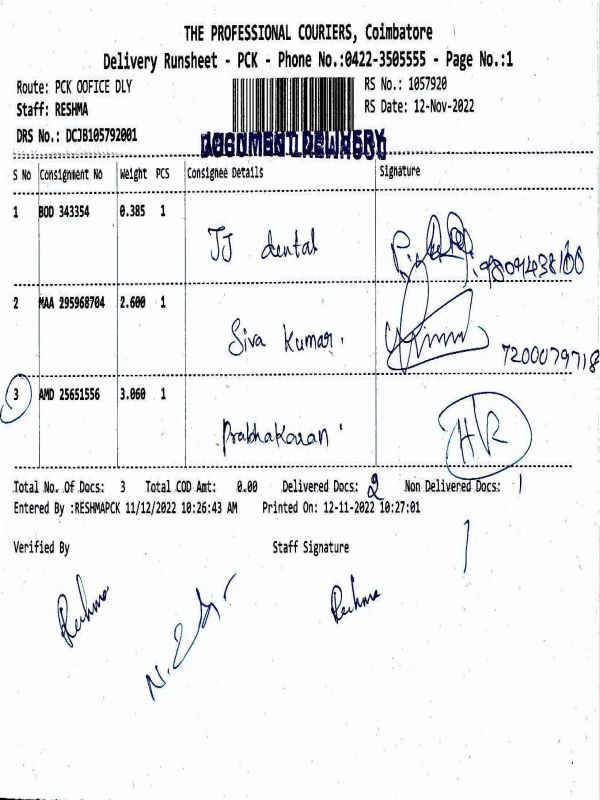 THE PROFESSIONAL COURIERS, Coimbatore
Delivery Runsheet - PCK - Phone No.:0422-3505555 - Page No.:1
Route: PCK OOFICE DLY RS No.: 1057920
Staff: RESHMA RS Date: 12-Nov-2022
DRS No.: DCJB105792001
S No Consignment No Weight PCS Consignee Details Signature
1 BOD 343354 0.385 1
JJ dental
9809438100
2 MAA 295968704 2.600 1
Siva Kumar.
7200079718
3 AMD 25651556 3.060 1
Prabhakaran
HR
Total No. Of Docs: 3 Total COD Amt: 0.00 Delivered Docs: 2 Non Delivered Docs: 1
Entered By :RESHMAPCK 11/12/2022 10:26:43 AM Printed On: 12-11-2022 10:27:01
Verified By Staff Signature
Reshma Reshma